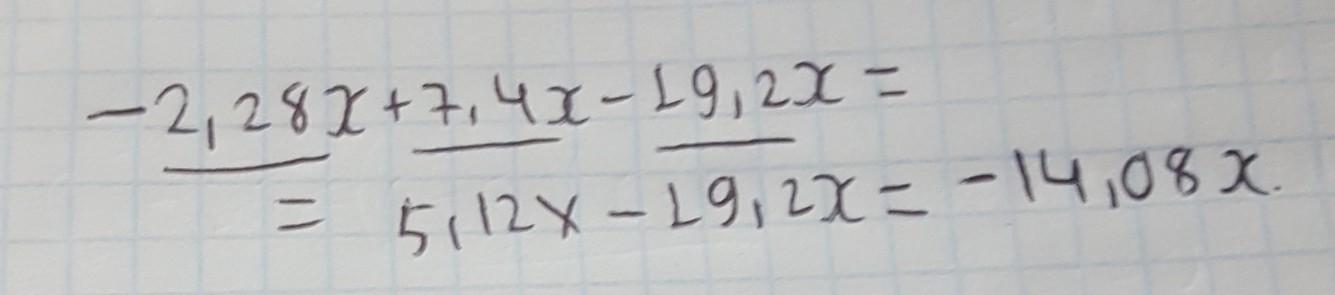 -2,28x+7,4x-19,2x=
= 5,12x-19,2x=-14,08x.